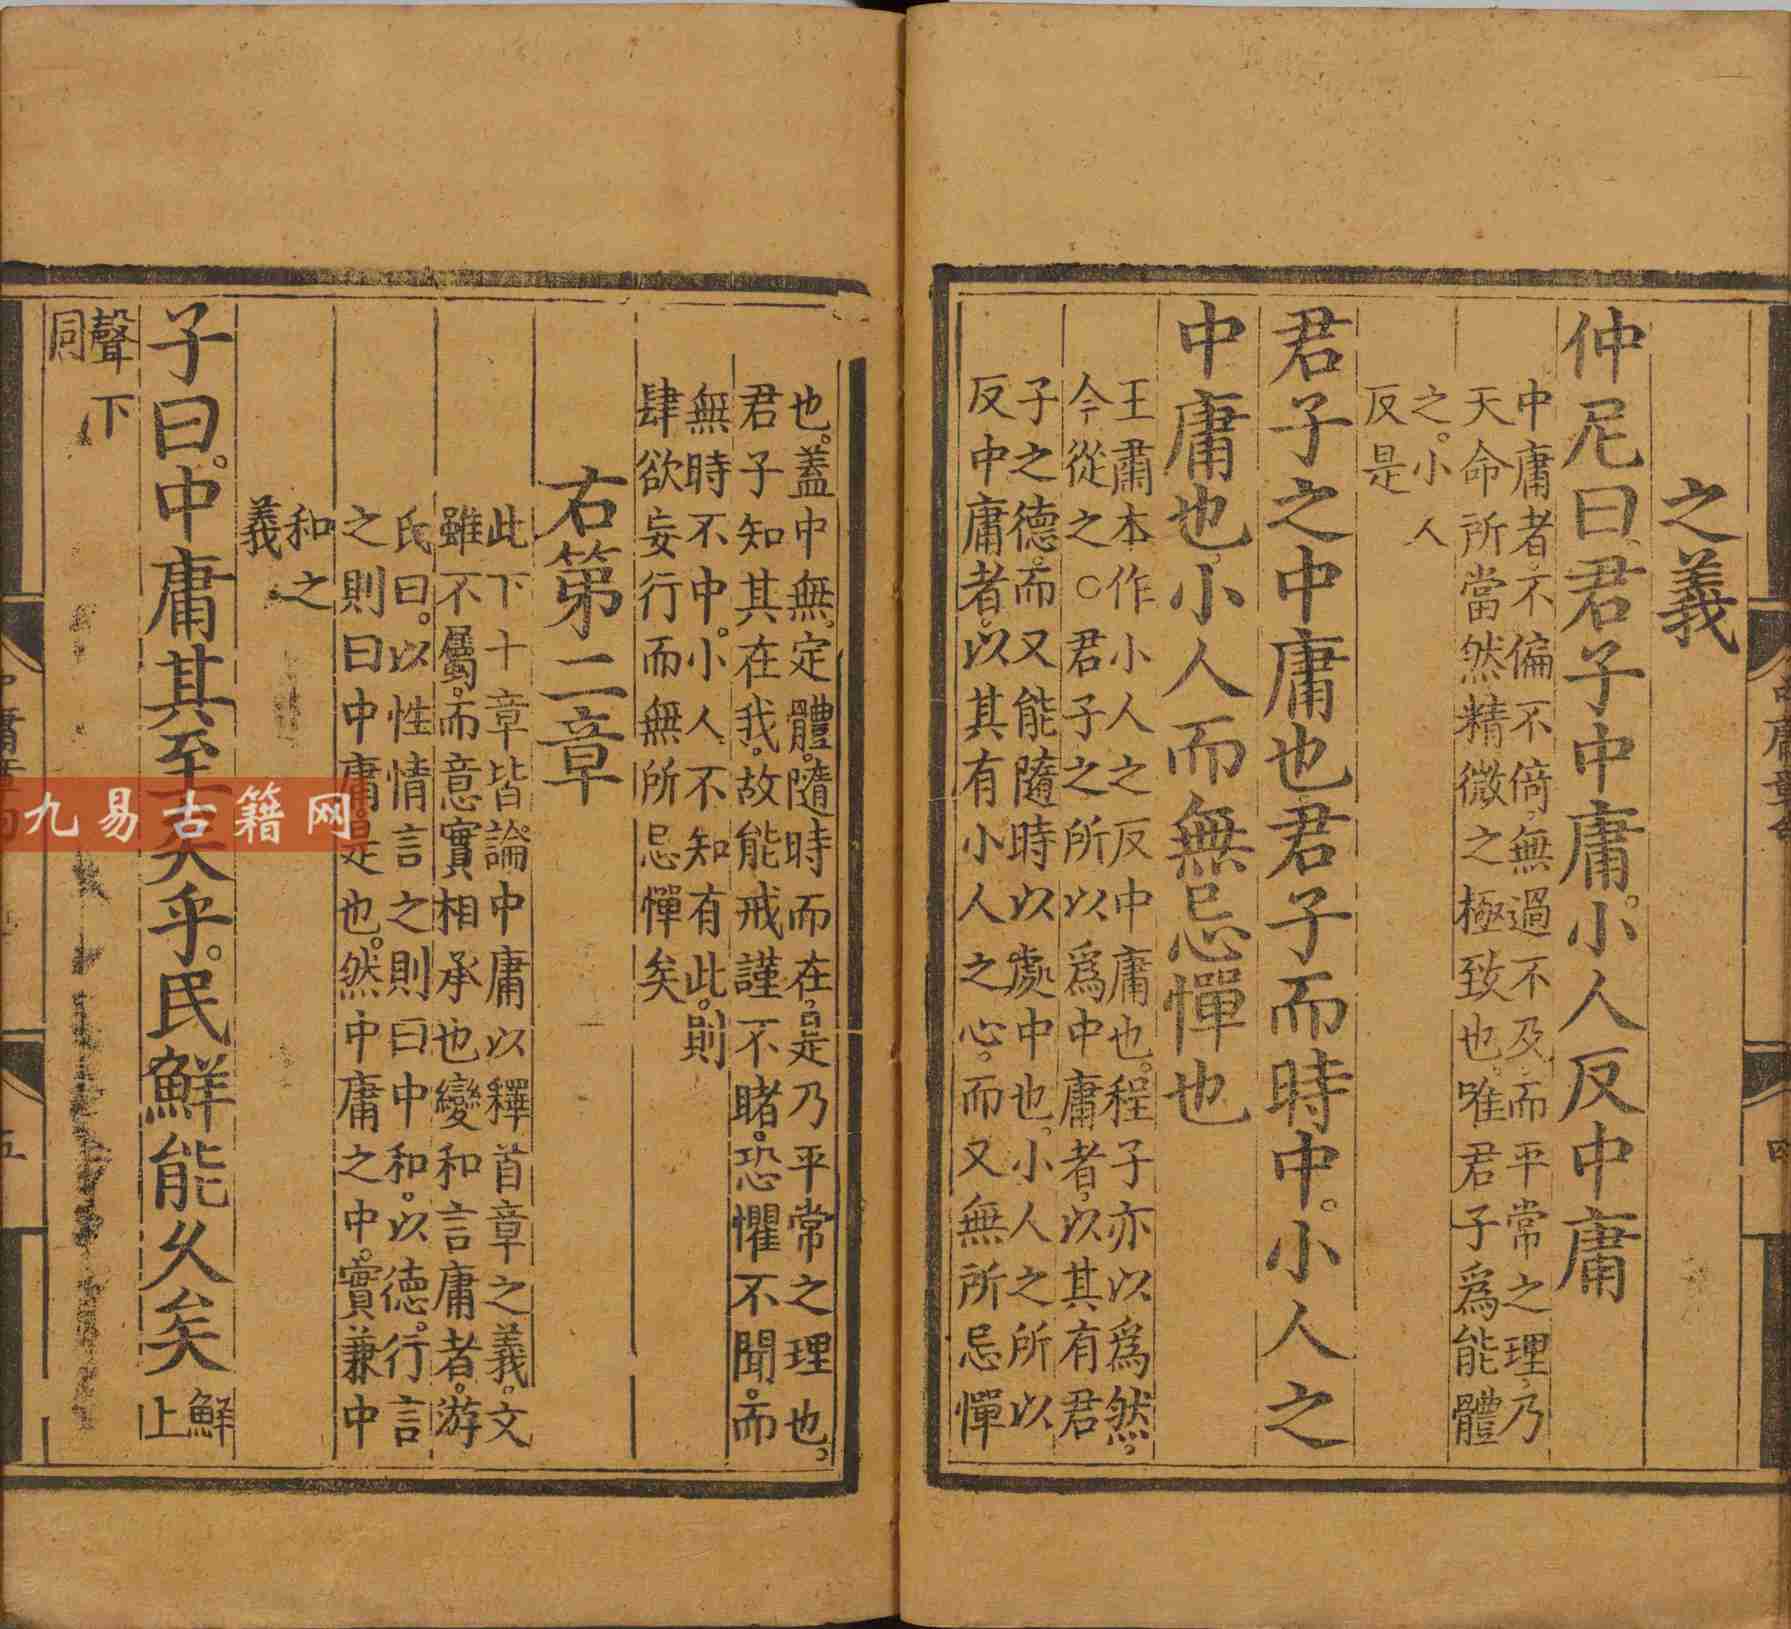 之義
仲尼曰君子中庸。小人反中庸
中庸者不偏不倚無過不及而平常之理乃
天命所當然精微之極致也唯君子為能體
之。小人
反是
君子之中庸也君子而時中。小人之
中庸也小人而無忌憚也
王肅本作小人之反中庸也。程子亦以為然。
今從之○君子之所以為中庸者以其有君
子之德而又能隨時以處中也小人之所以
反中庸者以其有小人之心。而又無所忌憚
也。蓋中無定體。隨時而在是乃平常之理也。
君子知其在我。故能戒謹不睹。恐懼不聞。而
無時不中。小人不知有此。則
肆欲妄行而無所忌憚矣
右第二章
此下十章皆論中庸以釋首章之義。文
雖不屬。而意實相承也變和言庸者。游
氏曰。以性情言之則曰中和。以德。行言
之則曰中庸是也。然中庸之中。實兼中
和之
義
子曰。中庸其至矣乎。民鮮能久矣
鮮
上
聲下
同
九易古籍网
四
五